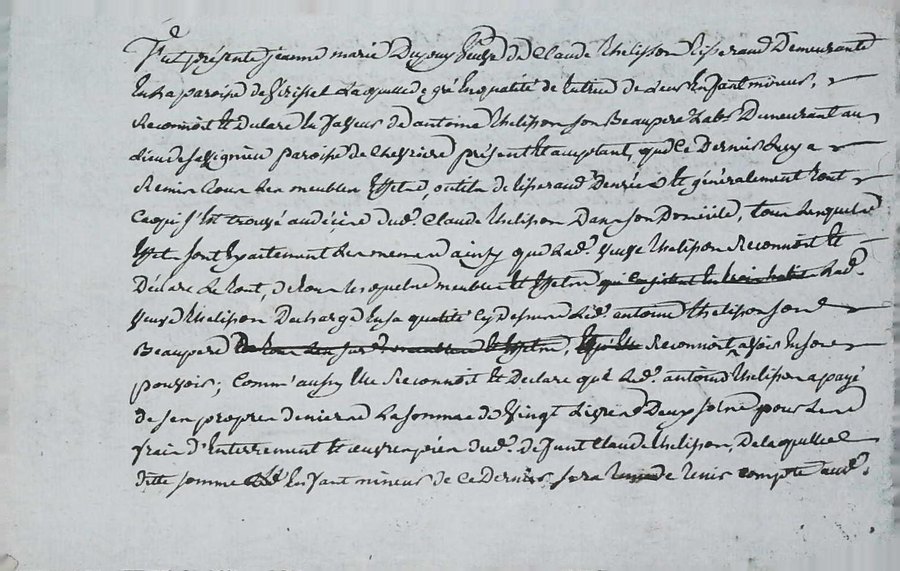 Fut présente jeanne marie Dupuy veuve de Claude thelisson tisserand Demeurante
En la paroisse de laquelle de gré En qualité de tutrice de Leurs Enfant mineurs,
Reconnoit et Declare En faveur de antoine thelisson son Beaupere Labr Demeurant au
Lieu de paroisse de present et acceptant, que Ce Dernier luy a
Remis tous Les meubles Effets, outils de tisserand Denrées et généralement tout
Ce qui s'est trouvé au décès dud. Claude thelisson Dans son Domicile, tous Lesquels
Effet sont Exactement Les memes ainsy que Lad. veuve thelisson Reconnoit et
Déclare Le tout, de tous lesquels meubles et Effets qui Consistent En trois Lad.
veuve thelisson Decharge En sa qualité Cy Dessus Led. antoine thelisson son
Beaupere De tous Les sus. meubles et Effets, Reconnoit avoir En son
pouvoir; Comm'aussy Elle Reconnoit et Declare que Led. antoine thelisson a payé
de ses propres deniers La somme de vingt Livres Deux sols pour Les
frais d'Enterrement et dud. deffunt Claude thelisson, De laquelle
ditte somme Les Enfant mineurs de Ce Dernier sera tenir compte aud.